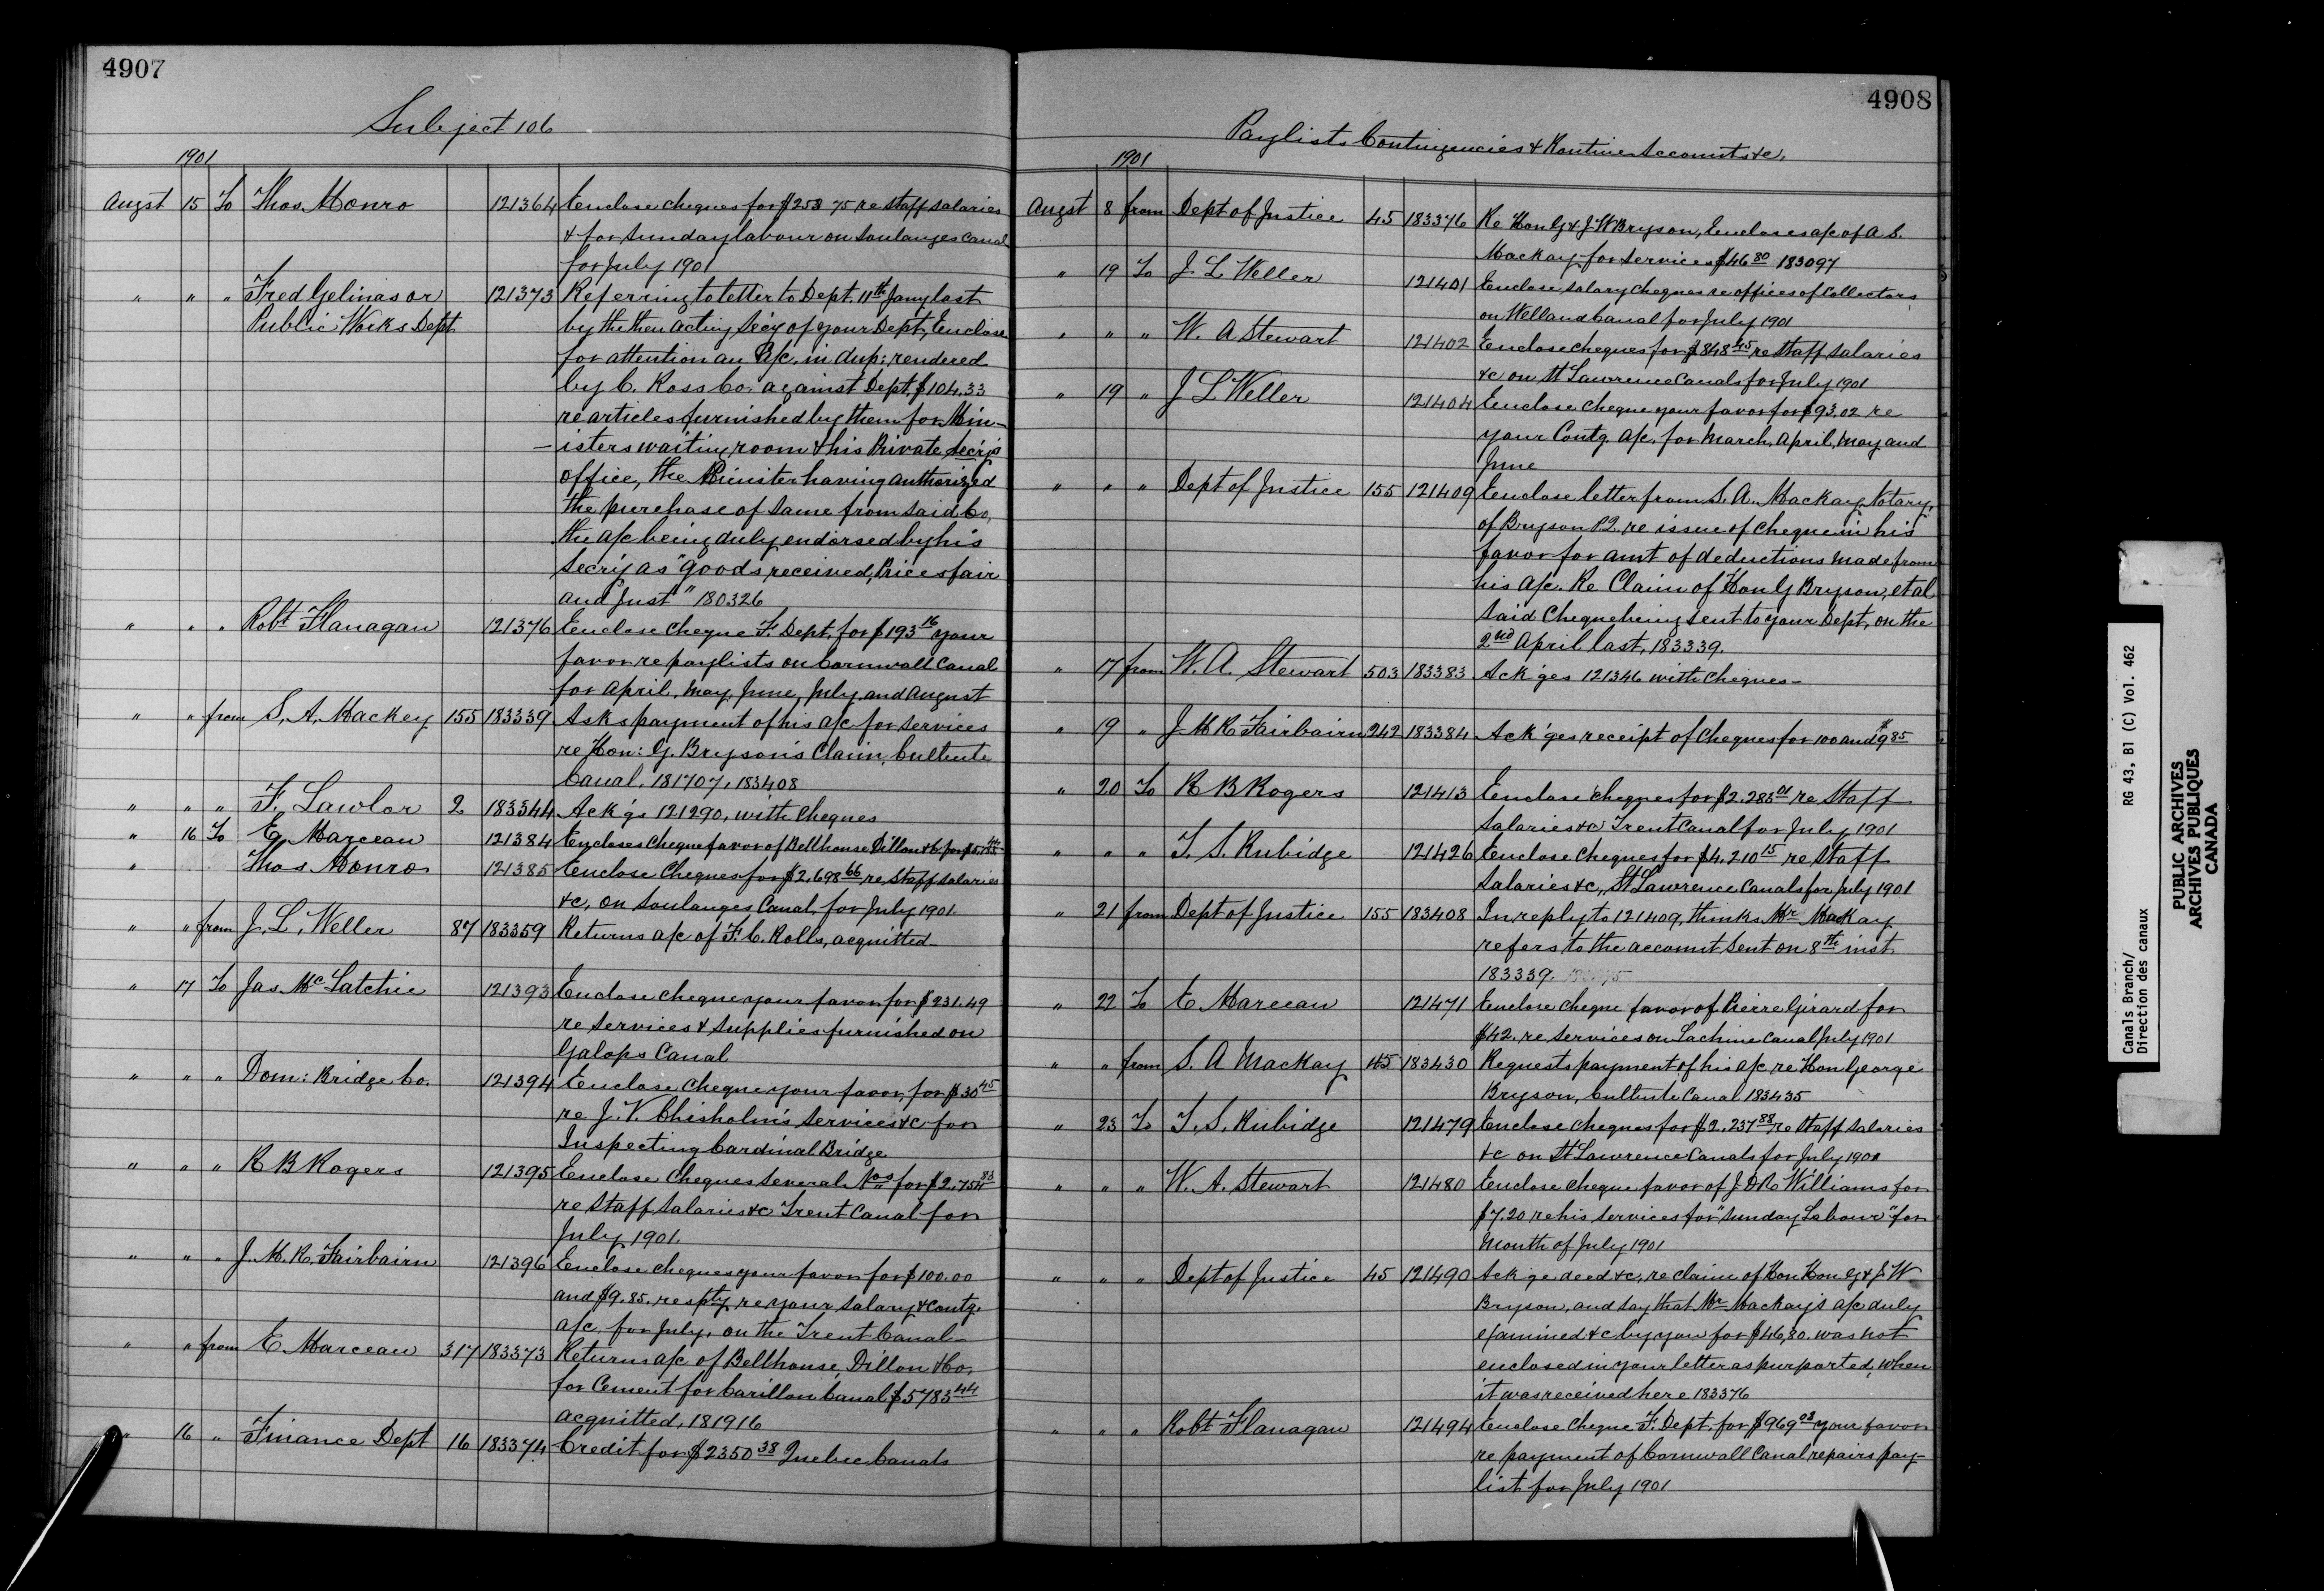 4907
Subject 106
1901
Augst 15 To Thos. Monro 121364 Enclose cheques for $253 75 re staff salaries
& for Sunday labour on Soulanges Canal
for July 1901
" " " Fred Gelinas or 121373 Referring to letter to Dept. 11th Jany last
Public Works Dept by the then acting Secy of your Dept, Enclose
for attention an a/c. in dup: rendered
by C. Ross Co. against Dept. $104.33
re articles furnished by them for Min-
-isters waiting room & his Private Secry's
office, the Minister having authorized
the purchase of same from said Co,
the a/c being duly endorsed by his
Secry as "goods received, Prices fair
and just" 180326
" " " Robt Flanagan 121376 Enclose cheque F. Dept. for $193 16 your
favor re paylists on Cornwall Canal
for April, May, June, July and August
" " from S. A. Mackey 155 183339 Asks payment of his a/c for services
re Hon: G. Bryson's Claim, Culbute
Canal. 181707, 183408
" " " F. Lawlor 2 183344 Ack'gs 121290, with cheques
" 16 To E. Marceau 121384 Encloses cheque favor of Bellhouse Dillon & Co. for
" Thos Monro 121385 Enclose Cheques for $2,698 66 re staff salaries
&c, on Soulanges Canal, for July 1901.
" " from J. L. Weller 87 183359 Returns a/c of F. C. Rolls, acquitted
" 17 To Jas. McLatchie 121393 Enclose cheque your favor for $231.49
re services & supplies furnished on
Galops Canal
" " " Dom: Bridge Co. 121394 Enclose cheque your favor, for $30 45
re J. V. Chisholm's services &c for
Inspecting Cardinal Bridge
" " " R B Rogers 121395 Enclose Cheques several Nos for $2,754 83
re staff salaries &c Trent Canal for
July 1901.
" " " J. M. R. Fairbairn 121396 Enclose cheques your favor for $100.00
and $9.85. respty re your salary & contg.
a/c. for July, on the Trent Canal-
" " from E. Marceau 317 183373 Returns a/c of Bellhouse, Dillon & Co,
for Cement for Carillon Canal $5783 44
acquitted, 181916
" 16 " Finance Dept 16 183374 Credit for $2350 38 Quebec Canals
4908
Paylists Contingencies & Routine Accounts &c,
1901
Augst 8 from Dept of Justice 45 183376 Re Hon G & J. W Bryson, Encloses a/c of A S.
Mackay for services $46 80 183097
" 19 To J. L. Weller 121401 Enclose salary cheques re offices of Collectors
on Welland Canal for July 1901
" " " W. A Stewart 121402 Enclose cheques for $848 45 re staff salaries
&c on St Lawrence Canals for July 1901
" 19 " J L Weller 121404 Enclose cheque your favor for $93.02 re
your Contg. a/c. for March, April, May and
June
" " " Dept of Justice 155 121409 Enclose letter from S. A. Mackay, Notary,
of Bryson P.Q. re issue of cheque in his
favor for amt of deductions made from
his a/c. Re Claim of Hon G Bryson, et al
said cheque being sent to your Dept, on the
2nd April last, 183339.
" 17 from W. A. Stewart 503 183383 Ack'ges 121346 with cheques-
" 19 " J M R Fairbairn 242 183384 Ack'ges receipt of cheques for 100 and $9 85
" 20 To R B Rogers 121413 Enclose cheques for $2.283 01 re Staff
Salaries &c Trent Canal for July 1901
" " " T. S. Rubidge 121426 Enclose Cheques for $4.210 15 re staff
Salaries &c,, St Lawrence Canals for July 1901
" 21 from Dept of Justice 155 183408 In reply to 121409, thinks Mr MacKay
refers to the account sent on 8th inst
183339.
" 22 To E Marceau 121471 Enclose cheque favor of Pierre Girard for
$42. re services on Lachine Canal July 1901
" " from S. A MacKay 183430 Requests payment of his a/c re Hon George
Bryson, Culbute Canal 183435
" 23 To T. S. Rubidge 121479 Enclose cheques for $2,237 88 re staff salaries
&c on St Lawrence Canals for July 1901
" " " W. A. Stewart 121480 Enclose cheque favor of J. D R Williams for
$7.20 re his services for "Sunday Labour" for
Month of July 1901
" " " Dept of Justice 45 121490 Ack'ge deed &c, re claim of Hon Hon G & J. W
Bryson, and say that Mr Mackay's a/c duly
examined &c by you for $46,80. was not
enclosed in your letter as purported, when
it was received here 183376
" " " Robt Flanagan 121494 Enclose cheque F. Dept. for $969 03 your favor
re payment of Cornwall Canal repairs pay-
list for July 1901
Canals Branch/
Direction des canaux
RG 43, B1 (C) Vol. 462
PUBLIC ARCHIVES
ARCHIVES PUBLIQUES
CANADA